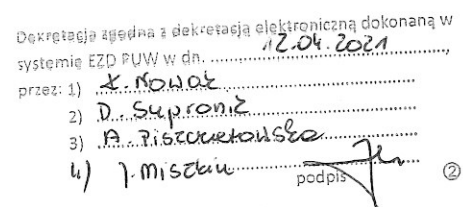 Dekretacja zgodna z dekretacją elektroniczną dokonaną w
systemie EZD PUW w dn. 12.04.2021,
przez: 1) K. Nowak
2) D. Supronik
3) A. Piszczatowska
4) J. Miszkin
podpis
②